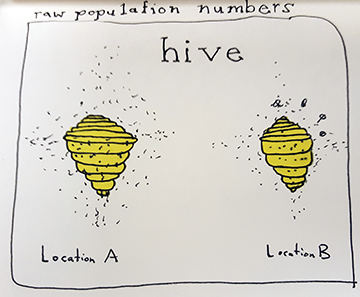 raw population numbers
hive
Location A
Location B